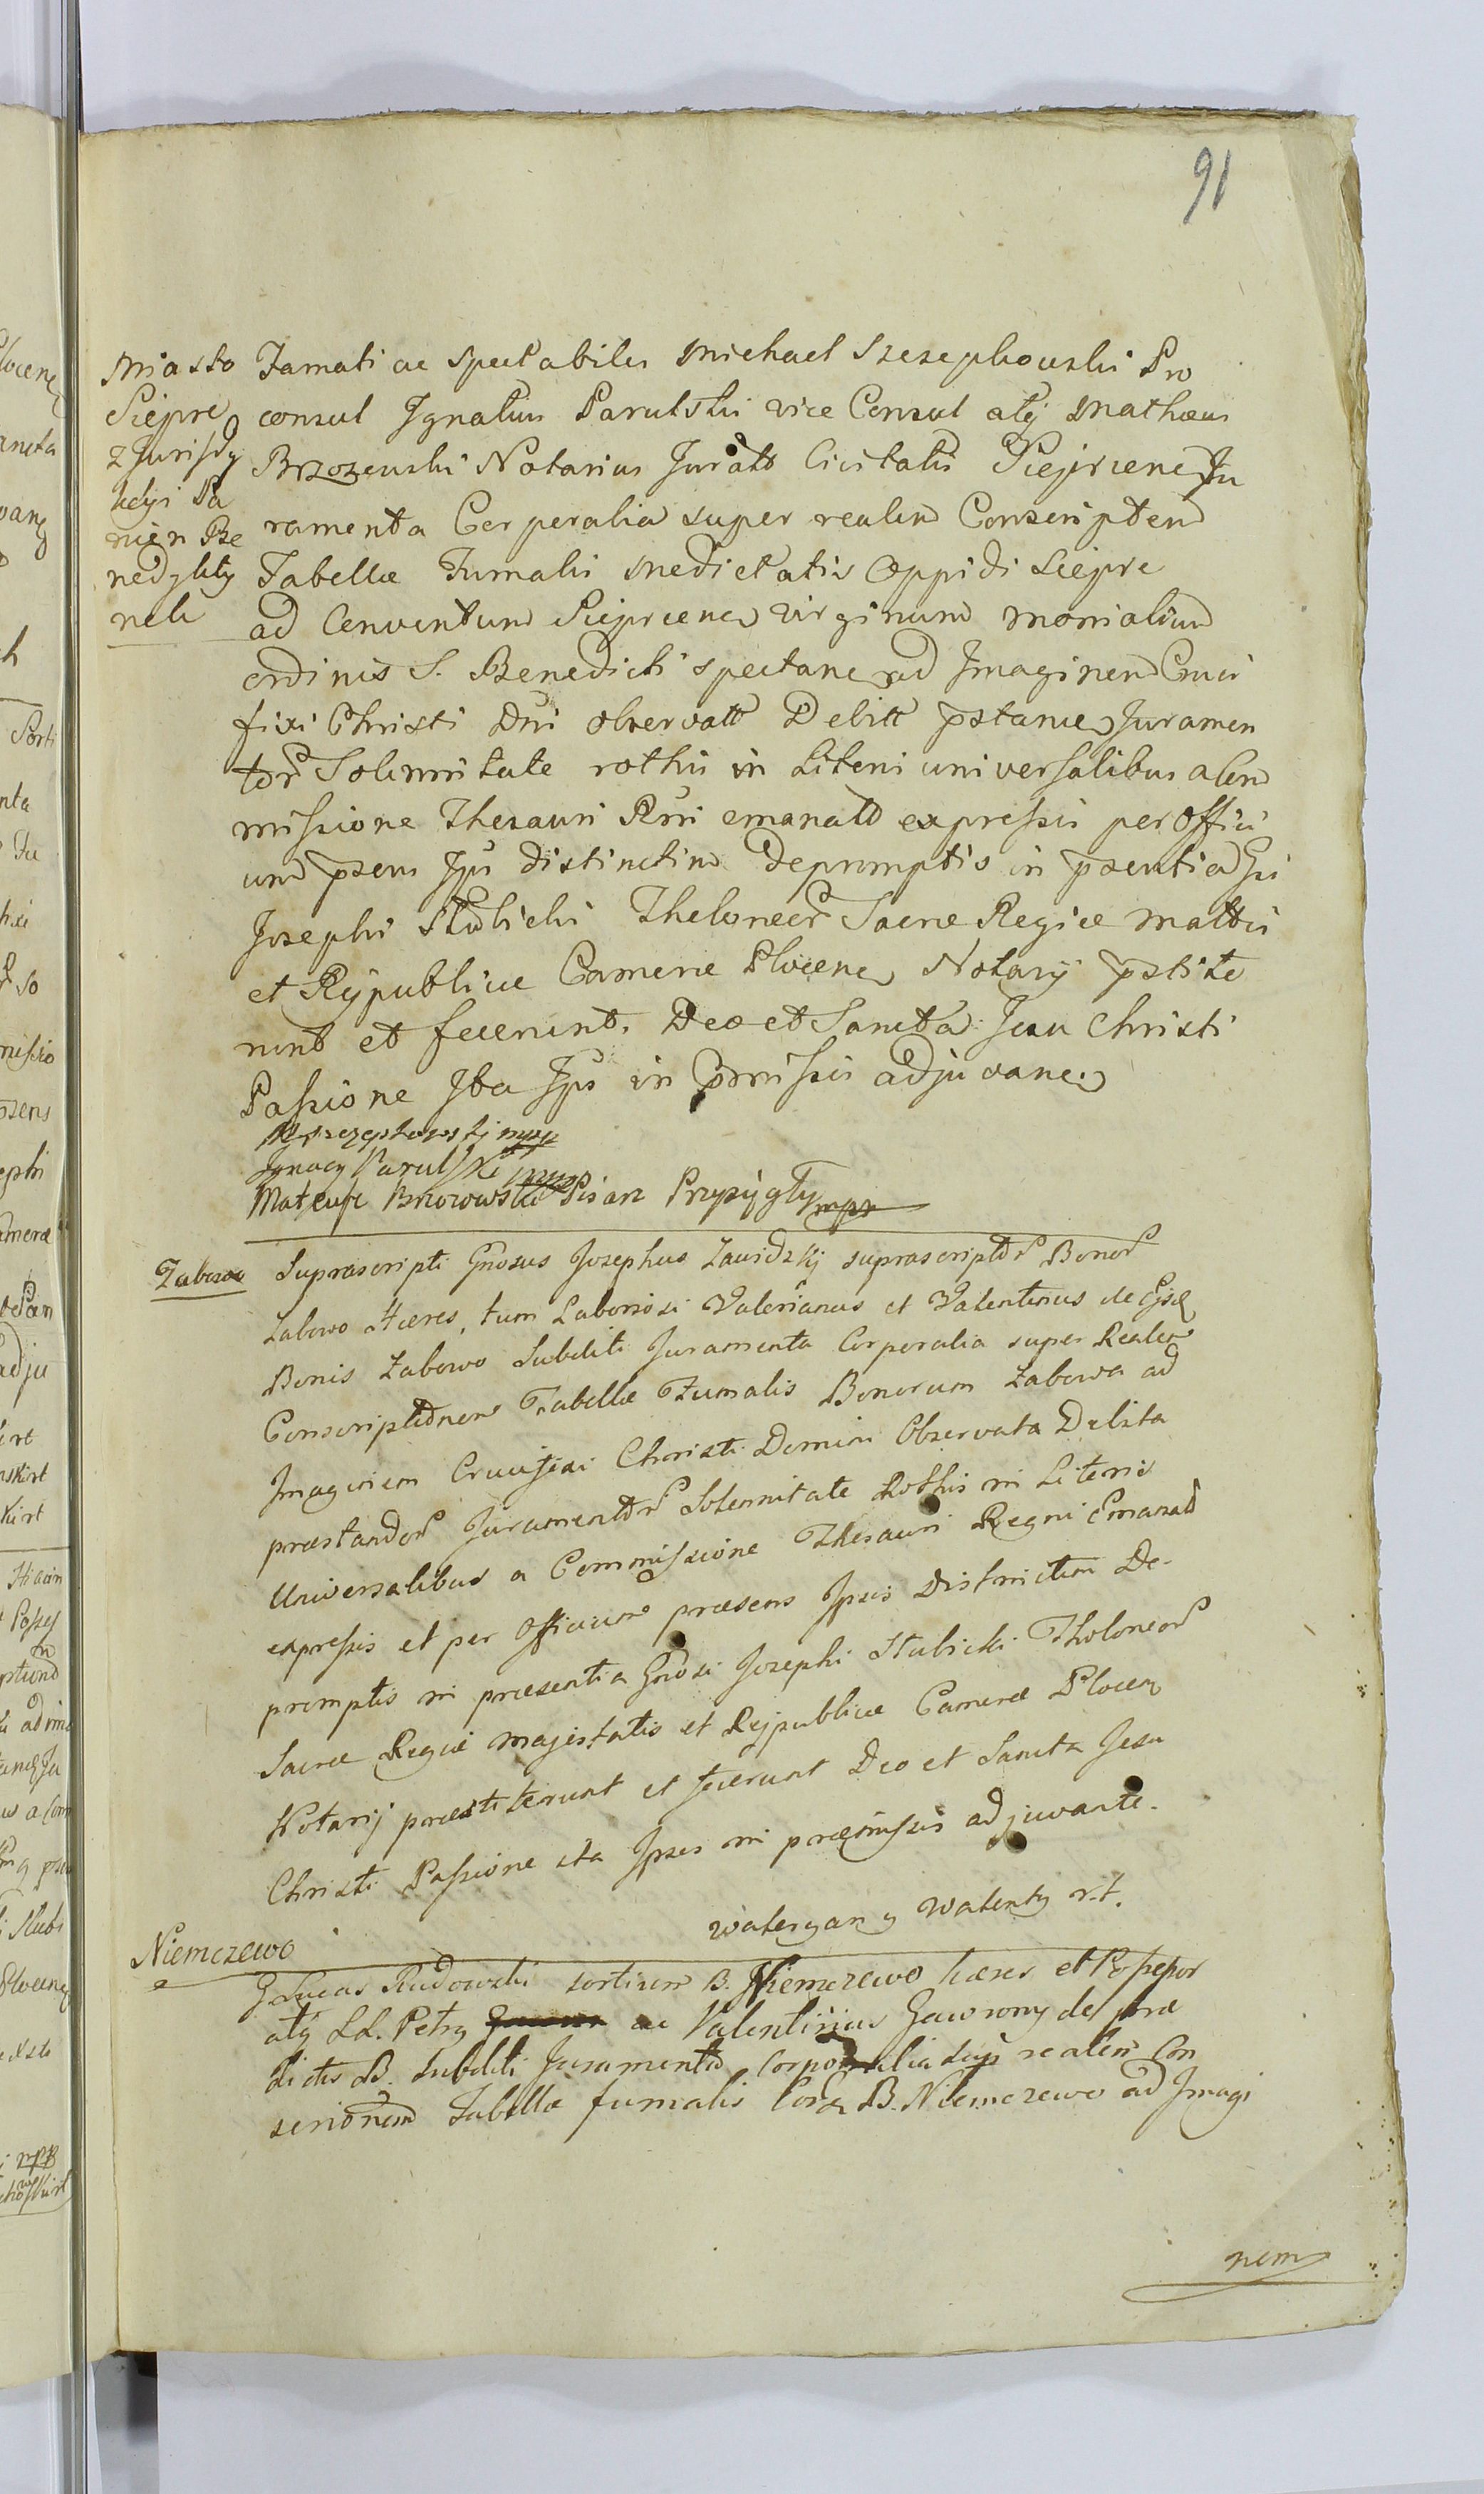 91
Miasto
Sieprc
z Jurisdy
kcyi Pa
nien Be
nedykty
nek
Famati ac Spectabiles Michael Szczepkowski Pro
consul Ignatius Parulski vice Consul atq Mathæus
Brzozowski Notarius Juratt Civitatis Sieprcenς Ju
ramenta Corporalia super realem Conscriptem
Tabellæ Fumalis Medietatis Oppidi Sieprc
ad Conventum Sieprcens virginum Monialium
ordinis S. Benedicti spectanς ad Imaginem Cruci
fixi Christi Dni observatt Debitt pstanς Juramen
tor Solennitate rothis in Literis universalibus a Com
missione Thesauri Rni emanatt expressis per Offici
um psens Jpis distinctim depromptis in psentia Gsi
Josephi Stubicki Theloneor Sacræ Regiæ Mattis
et Reipublicæ Cameræ Plocenς Notarij pstite
runt et fecerunt. Deo et Sancta Jesu Christi
Passione Ita Jps in pmissis adjuvane.
M Szczepkowskj mpp
Jgnacy Parulski mpp
Mateusz Brzozowski Pisarz Przysięgły mpr
Zabowo
Suprascripti Gnosus Josephus Zawidzkj suprascriptor Bonor
Zabowo Hæres, tum Laboriosi Valerianus et Valentinus de Ejsd
Bonis Zabowo Subditi Juramenta Corporalia super Realem
Conscriptionem Tabellæ Fumalis Bonorum Zabowa ad
Imaginem Crucifixi Christi Domini Observata Debita
præstandor Juramentor Solennitate Rothis in Literis
Universalibus a Commissione Thesauri Regni Emanatt
expressis et per Officium præsens Ipsis Distinctim De-
promptis in præsentia Gnosi Josephi Stubicki Tholoneor
Sacræ Regiæ Majestatis et Rejpublicæ Cameræ Plocen
Notarij præstiterunt et fecerunt Deo et Sancta Jesu
Christi Passione ita Ipsis in præmissis adjuvante.
Waleryan y Walenty r.t.
Niemczewo
G Lucas Rudowski sortium B. Niemczewo hæres et Possessor
atq LL. Petrq ac Valentinus Gawrony de præ
dictis B. Subditi Juramenta Corporalia sup realem Con
scrionem Tabellæ fumalis B. Niemczewo ad Imagi
nem